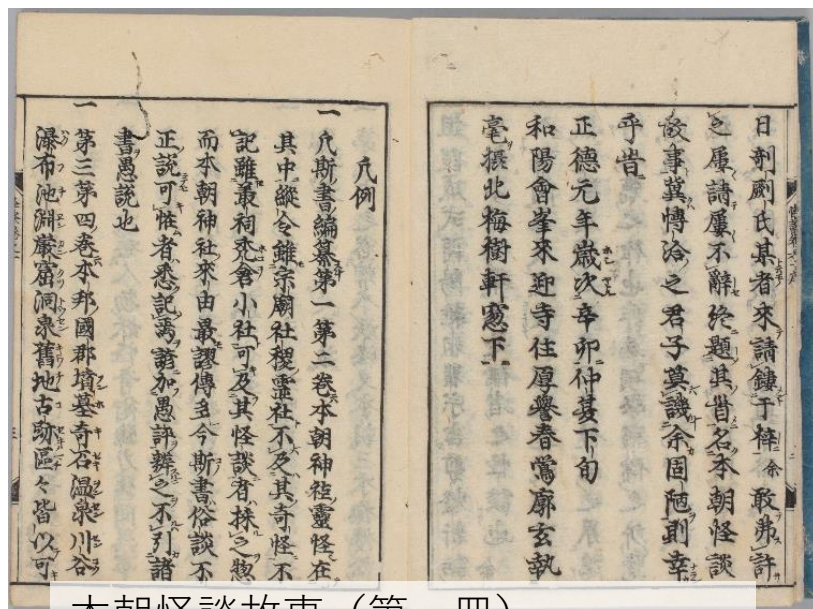 日剞劂氏某者來請鏤于梓余敢弗許
之屬請屢不辭終題其首名本朝怪談
故事冀愽洽之君子莫譏余固陋則幸
乎昔
正德元年歲次辛卯仲夏下旬
和陽會峯來迎寺住厚譽春鶯廓玄執
毫援北梅樹軒窓下
凡例
一 凡斯書編纂第一第二卷本朝神社靈怪在
其中縱令雖宗廟社稷靈社不及其奇怪不
記雖叢祠禿倉小社可及其怪談者採之惣
而本朝神社來由最謬傳多今斯書俗談不
正說可恠者悉記焉諺加愚評辨之不引諸
書愚說也
一 第三第四卷本邦國郡墳墓奇石温泉川谷
瀑布池淵巖窟洞泉舊地古跡區々皆以可
本朝怪談故事（第一冊）